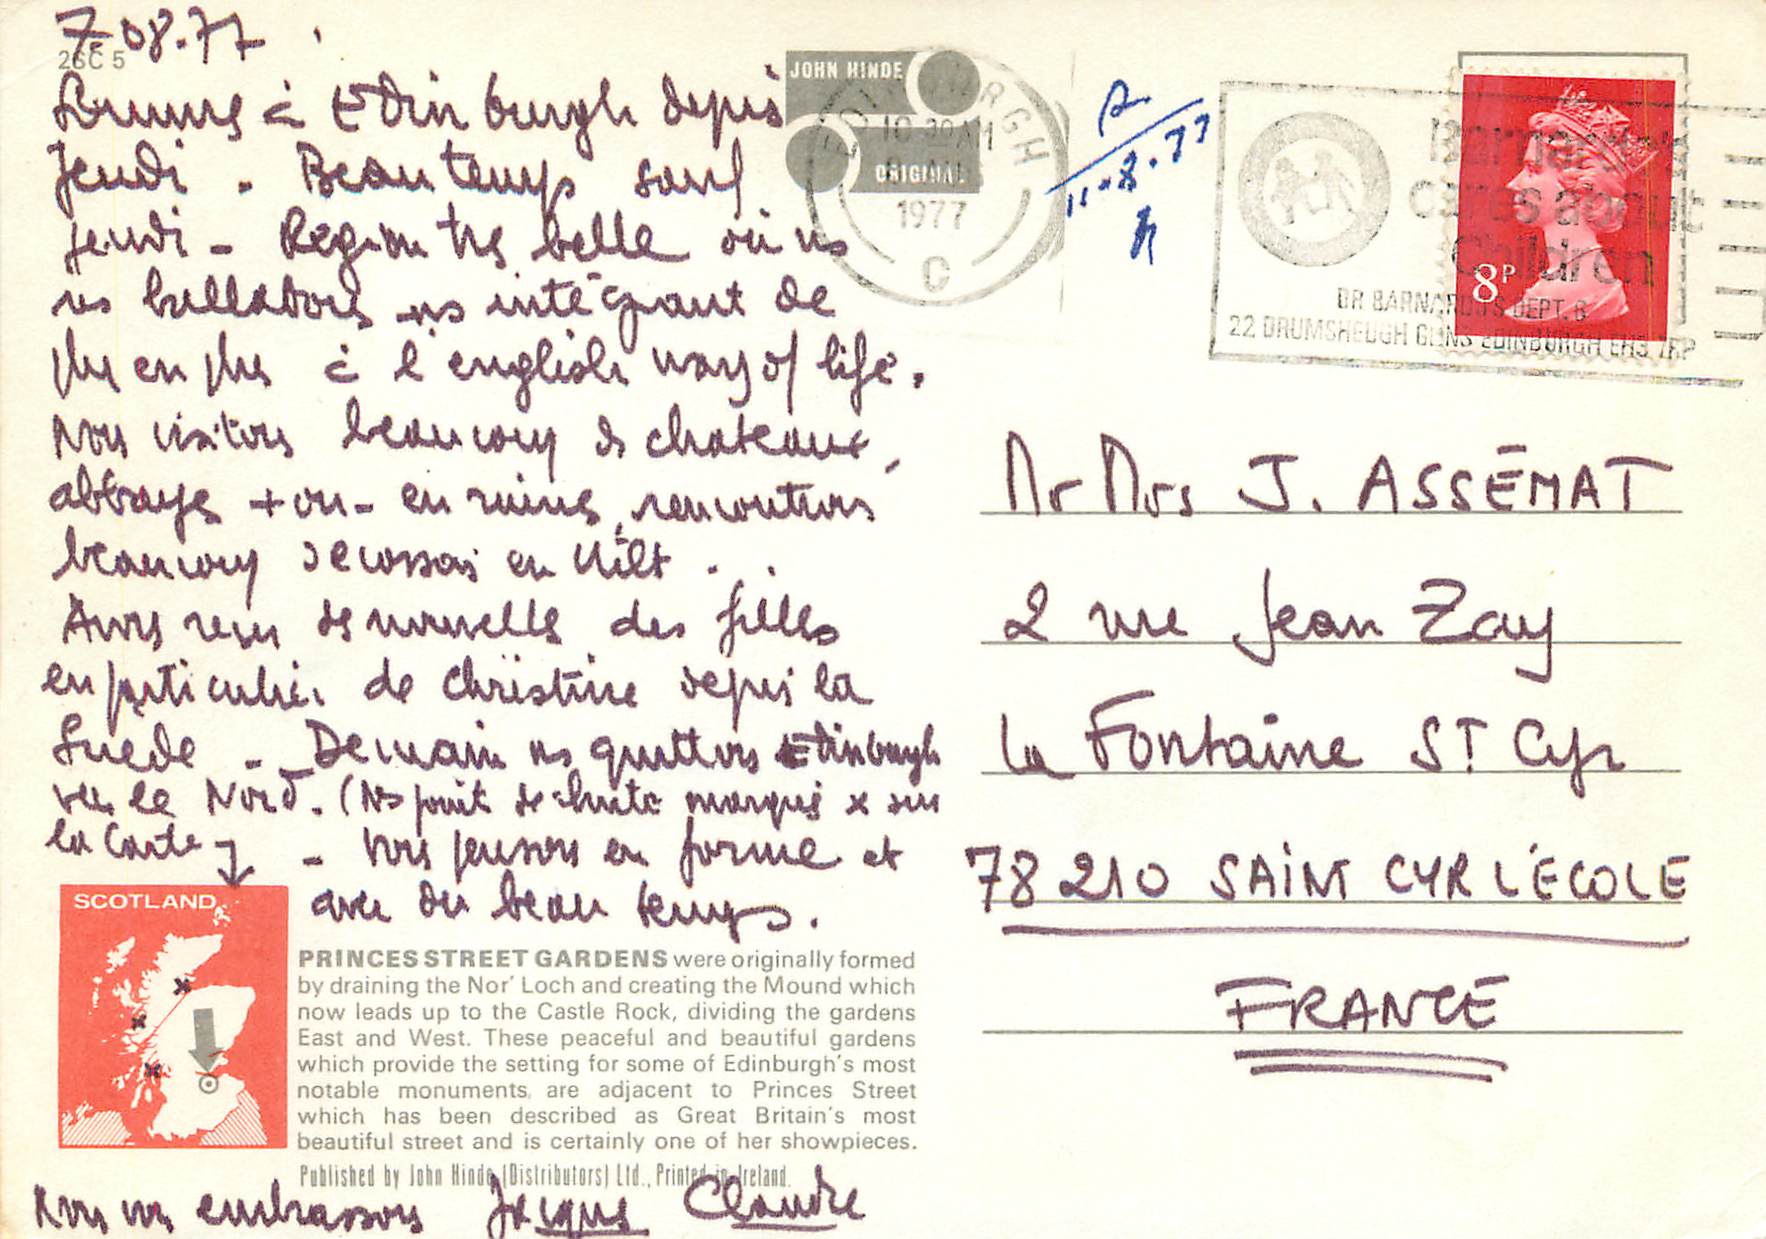 7.08.77
2SC 5
Sommes à Edinburgh depuis
Jeudi. Beau temps sauf
jeudi - Région très belle où ns
ns balladons ns intégrant de
plus en plus à l'english way of life.
Nous visitons beaucoup de chateaux,
abbayes + ou - en ruines, rencontrons
beaucoup d'ecossais en Kilt.
Avons reçu de nouvelles des filles
en particulier de Christine depuis la
Suède - Demain ns quittons Edinburgh
vers le Nord. (Ns point de chute marqués x sur
la Carte - Vous pensons en forme et
avec du beau temps.
SCOTLAND
PRINCES STREET GARDENS were originally formed
by draining the Nor' Loch and creating the Mound which
now leads up to the Castle Rock, dividing the gardens
East and West. These peaceful and beautiful gardens
which provide the setting for some of Edinburgh's most
notable monuments, are adjacent to Princes Street
which has been described as Great Britain's most
beautiful street and is certainly one of her showpieces.
Published by John Hinde (Distributors) Ltd., Printed in Ireland.
Nous vous embrassons Jacques Claudie
JOHN HINDE
ORIGINAL
EDINBURGH
10 30 AM
1977
C
11-8-77
Barnardo's
Cares about
Children
DR BARNARDO'S DEPT. B
22 DRUMSHEUGH GDNS EDINBURGH EH3 7RP
8P
Mr Mrs J. ASSÉMAT
2 rue Jean Zay
la Fontaine ST Cyr
78210 SAINT CYR L'ÉCOLE
FRANCE